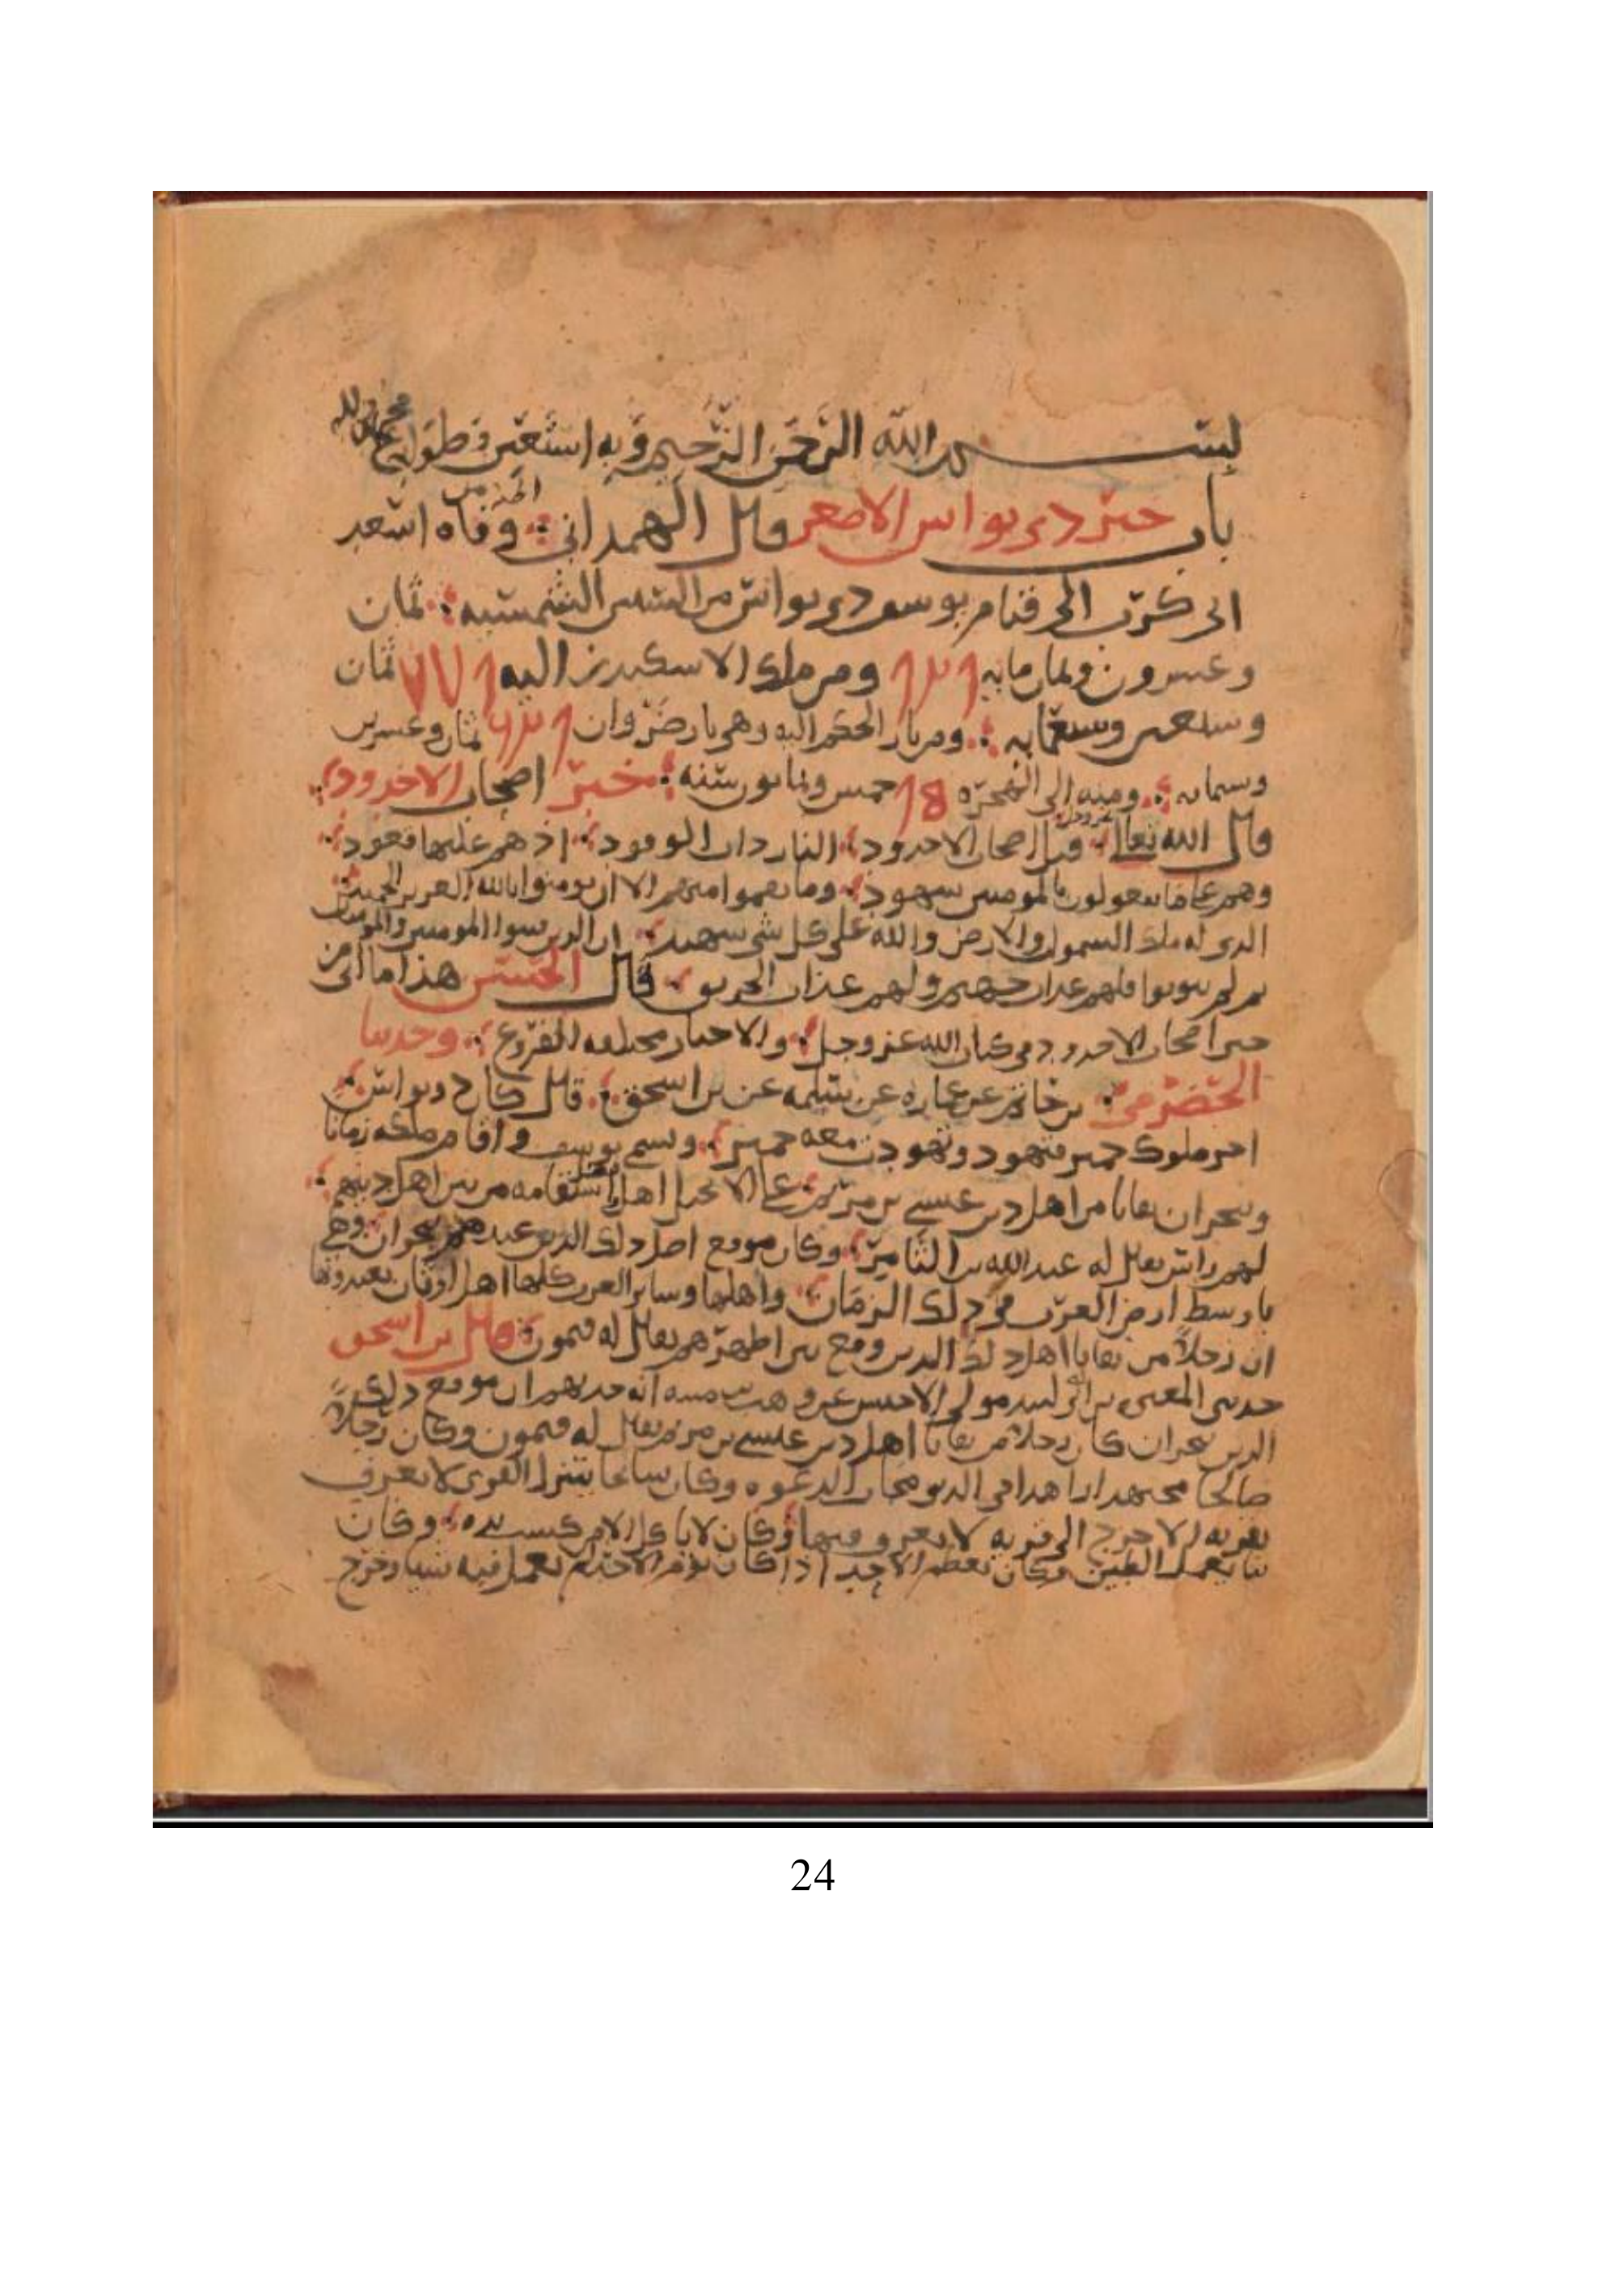 بسم الله الرحمن الرحيم وبه استعين وطول
باب خبر ذي نواس الاصغر قال الهمداني وفاه اسعد
ابي كرب الى قيام يوسف ذي نواس من السنين الشمسيه ثمان
وعشرون وثمان مايه ومن ملك الاسكندر اليه ثمان
وسبعين وسبعمايه ومن نار الحكم اليه وهي نار ضروان ثمان وعشرين
وستمايه ومنه الى الهجره خمس وثمانون سنه خبر اصحاب الاخدود
قال الله تعالى عز وجل قتل اصحاب الاخدود النار ذات الوقود اذ هم عليها قعود
وهم على ما يفعلون بالمومنين شهود وما نقموا منهم الا ان يومنوا بالله العزيز الحميد
الذي له ملك السموات والارض والله على كل شي شهيد ان الذين فتنوا المومنين والمومنات
ثم لم يتوبوا فلهم عذاب جهنم ولهم عذاب الحريق قال الحسن هذا ما اتى من
خبر اصحاب الاخدود في كتاب الله عز وجل والاخبار مختلفه الفروع وحدثنا
الحضرمي عن عماره عن سلمه عن بن اسحق قال كان ذو نواس
اخر ملوك حمير فتهود وتهودت معه حمير وسمي يوسف واقام في ملكه زمانا
وبنجران بقايا من اهل دين عيسى بن مريم على الانجيل اهل فضل واستقامه من اهل دينهم
لهم راس يقال له عبدالله بن الثامر وكان موقع اصل ذلك الدين عندهم بنجران وهي
باوسط ارض العرب في ذلك الزمان واهلها وساير العرب كلها اهل اوثان يعبدونها
ان رجلا من بقايا اهل ذلك الدين وقع بين اظهرهم يقال له فيمون قال بن اسحق
حدثني المغيره بن ابي لبيد مولى الاخنس عن وهب بن منبه انه حدثهم ان موقع ذلك
الدين بنجران كان رجلا من بقايا اهل دين عيسى بن مريم يقال له فيمون وكان رجلا
صالحا مجتهدا زاهدا في الدنيا مجاب الدعوه وكان سايحا ينزل القرى لا يعرف
بقريه الا خرج الى قريه لا يعرف فيها وكان لا ياكل الا من كسب يده وكان
بنا يعمل الطين وكان يعظم الاحد اذا كان يوم الاحد لم يعمل فيه شيا وخرج
24